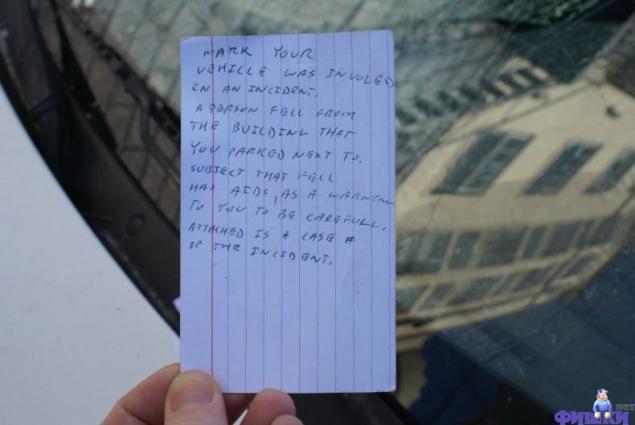 MARK YOUR
VEHILLE WAS INVOLED
IN AN INCIDENT.
A PERSON FELL FROM
THE BUILDING THAT
YOU PARKED NEXT TO.
SUBJECT THAT FELL
HAS AIDS, AS A WARNING
TO YOU TO BE CAREFULL.
ATTACHED IS A CASE #
OF THE INCIDENT.
ФИШКИ.НЕТ